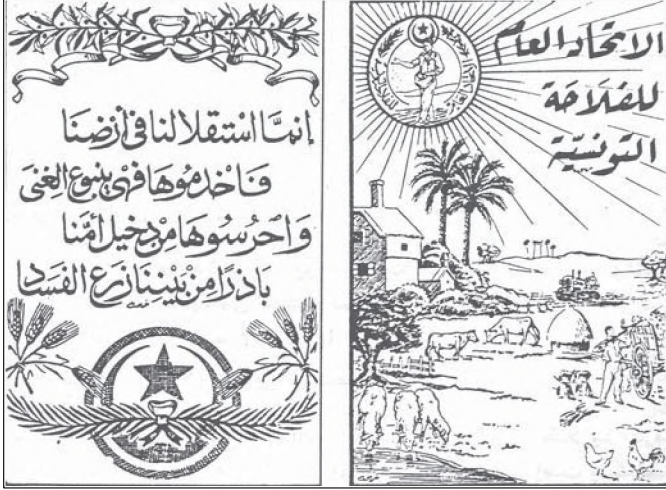 الاتحاد العام
للفلاحة
التونسية
إنما استقلالنا في أرضنا
فاخدموها فهي ينبوع الغنى
واحرسوها من دخيل أمنا
باذرًا من بيننا زرع الفساد